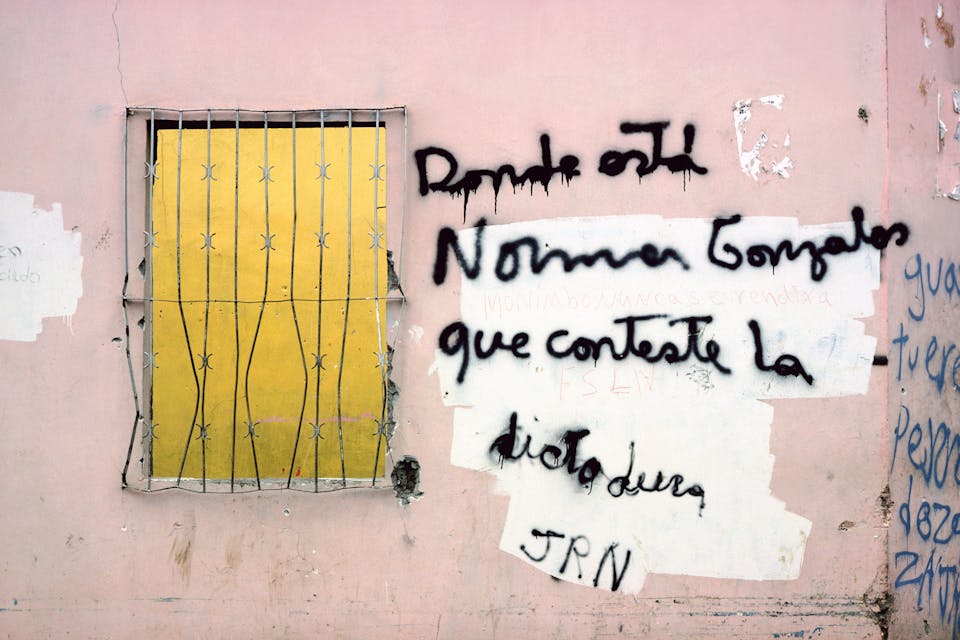 Donde está
Norma Gonzales
Monimbo nunca se rendira
que conteste la
FSLN
dictadura
JRN
gua
tuere